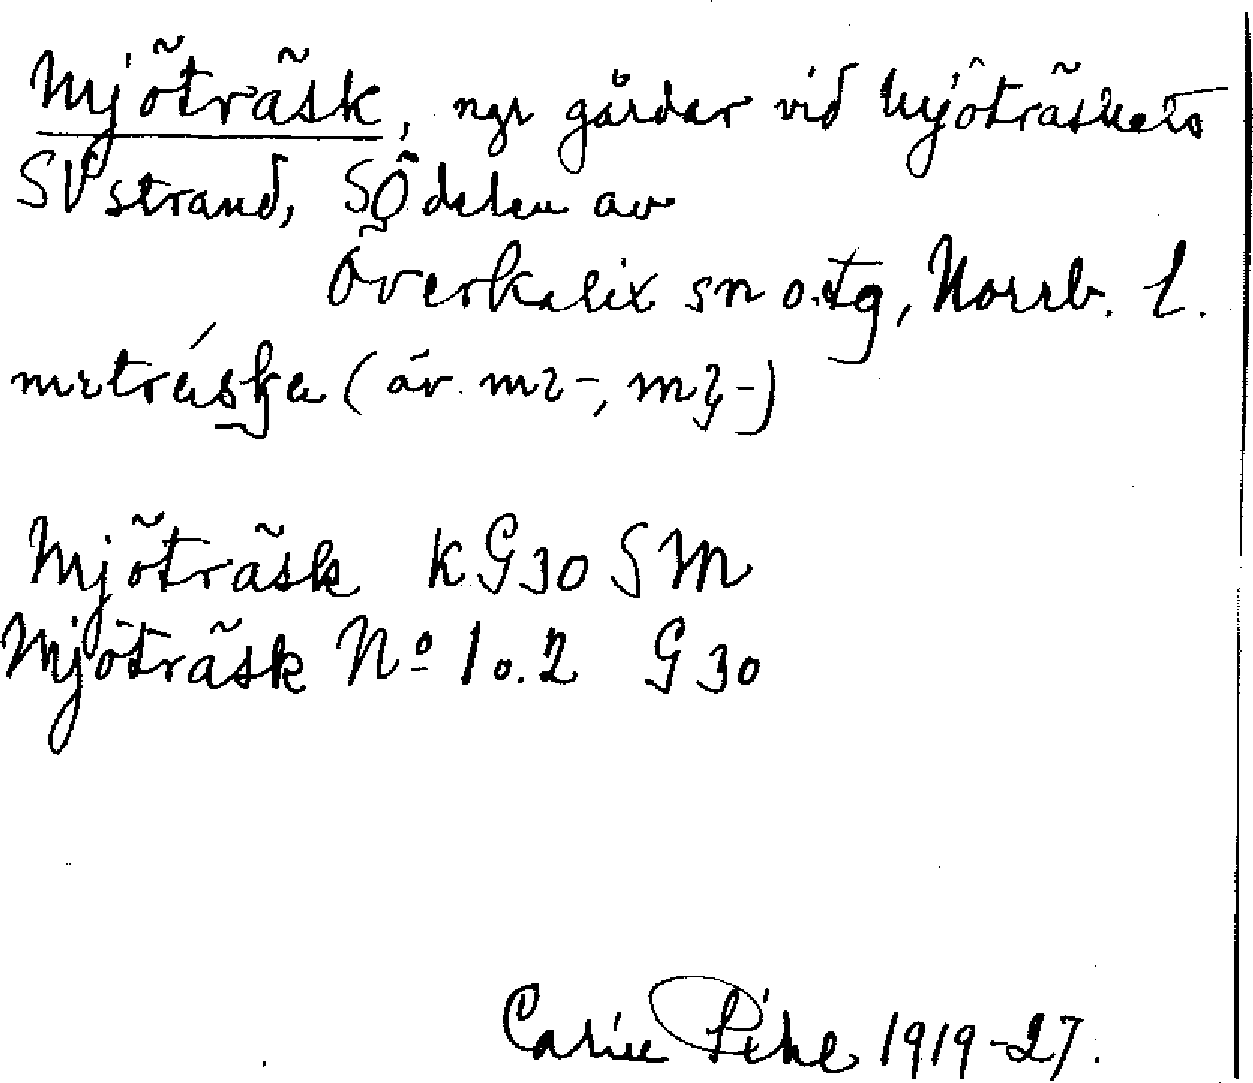 Mjöträsk, ngr gårdar vid Mjöträskets
SV strand, SÖ delen av
Överkalix sn o. tg, Norrb. l.
(äv.
Mjöträsk KG30 SM
Mjöträsk Nº 1 o. 2 G30
Carin Pihl 1919-27.